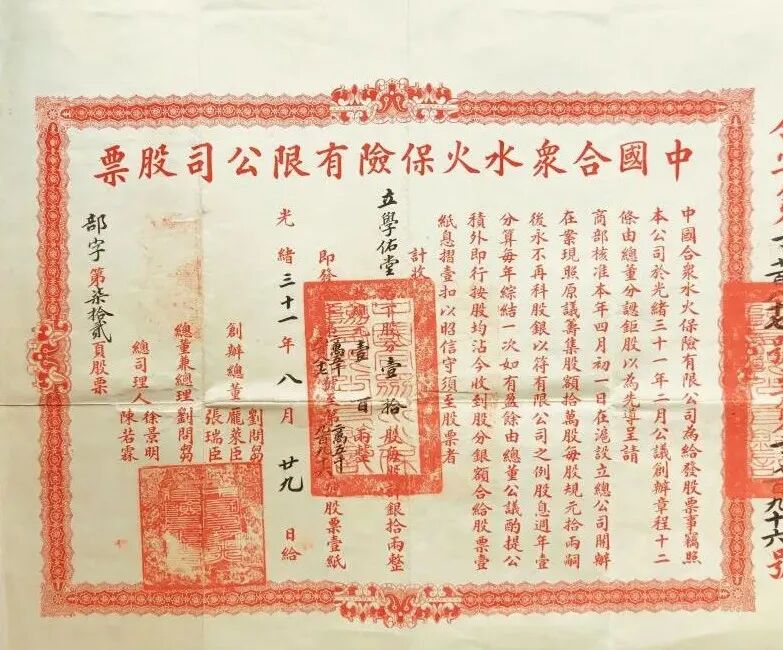 中國合衆水火保險有限公司股票
中國合衆水火保險有限公司為給發股票事竊照
本公司於光緒三十一年二月公議創辦章程十二
條由總董分認鉅股以為先導呈請
商部核准本年四月初一日在滬設立總公司開辦
在案現照原議籌集股額拾萬股每股規元拾兩嗣
後永不再科股銀以符有限公司之例股息週年壹
分算每年綜結一次如有盈餘由總董公議酌提公
積外即行按股均沾今收到股分銀額合給股票壹
紙息摺壹扣以昭信守須至股票者
計收
立學佑堂 下股分壹拾股每股計銀拾兩整
規元壹百兩整
即發 股票壹紙
光緒三十一年八月廿九日給
創辦總董
劉問芻
龐萊臣
張瑞臣
總董兼總理劉問芻
總司理人
徐景明
陳若霖
部字第柒拾貳頁股票